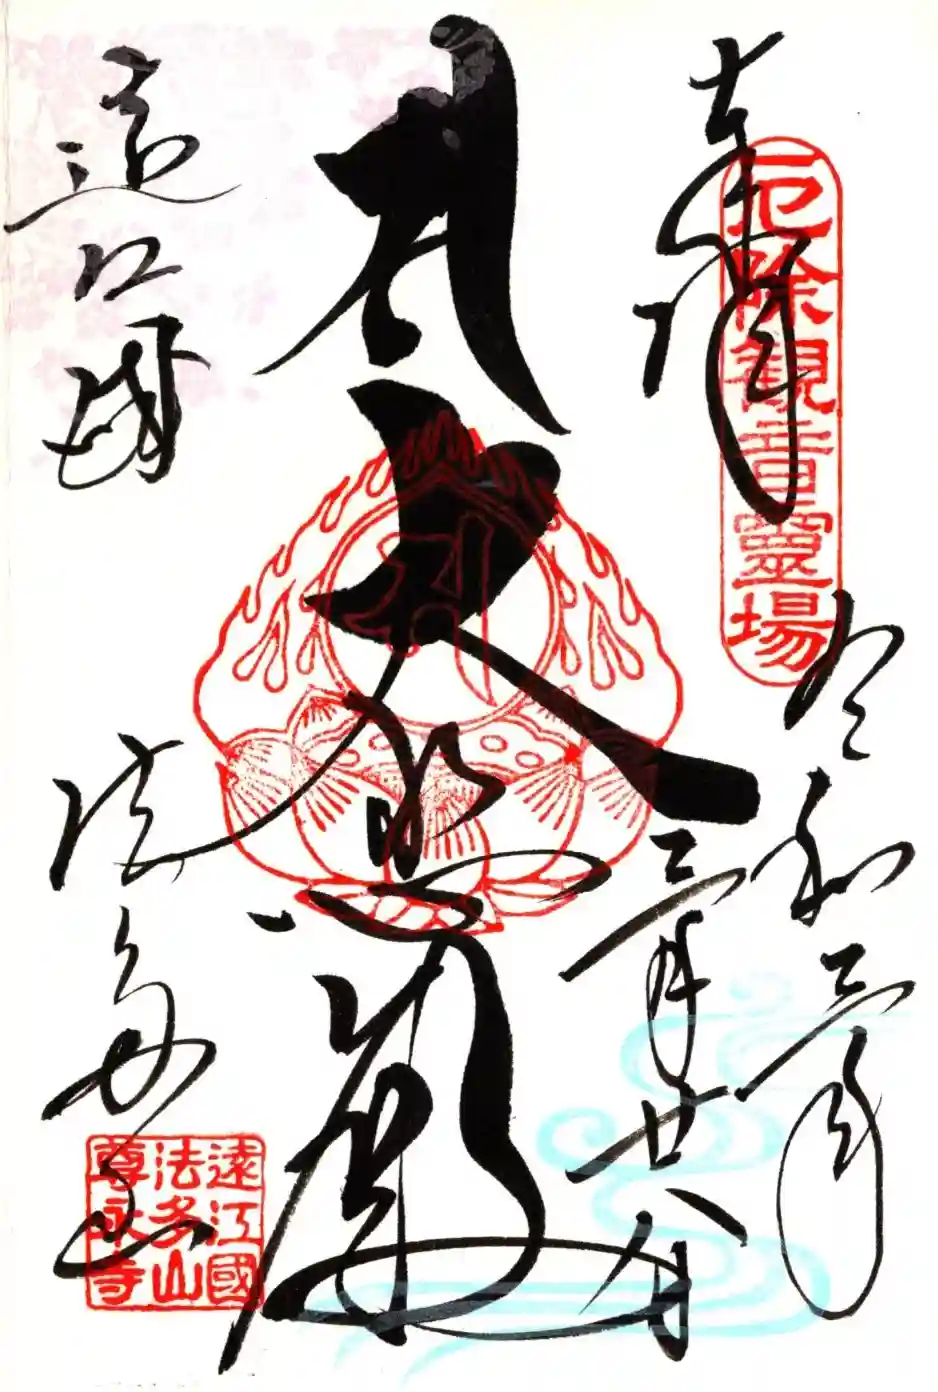 奉拝
厄除観音靈場
令和三年
三月廿八日
大悲
遠江國
法多山
遠江國
法多山
尊永寺